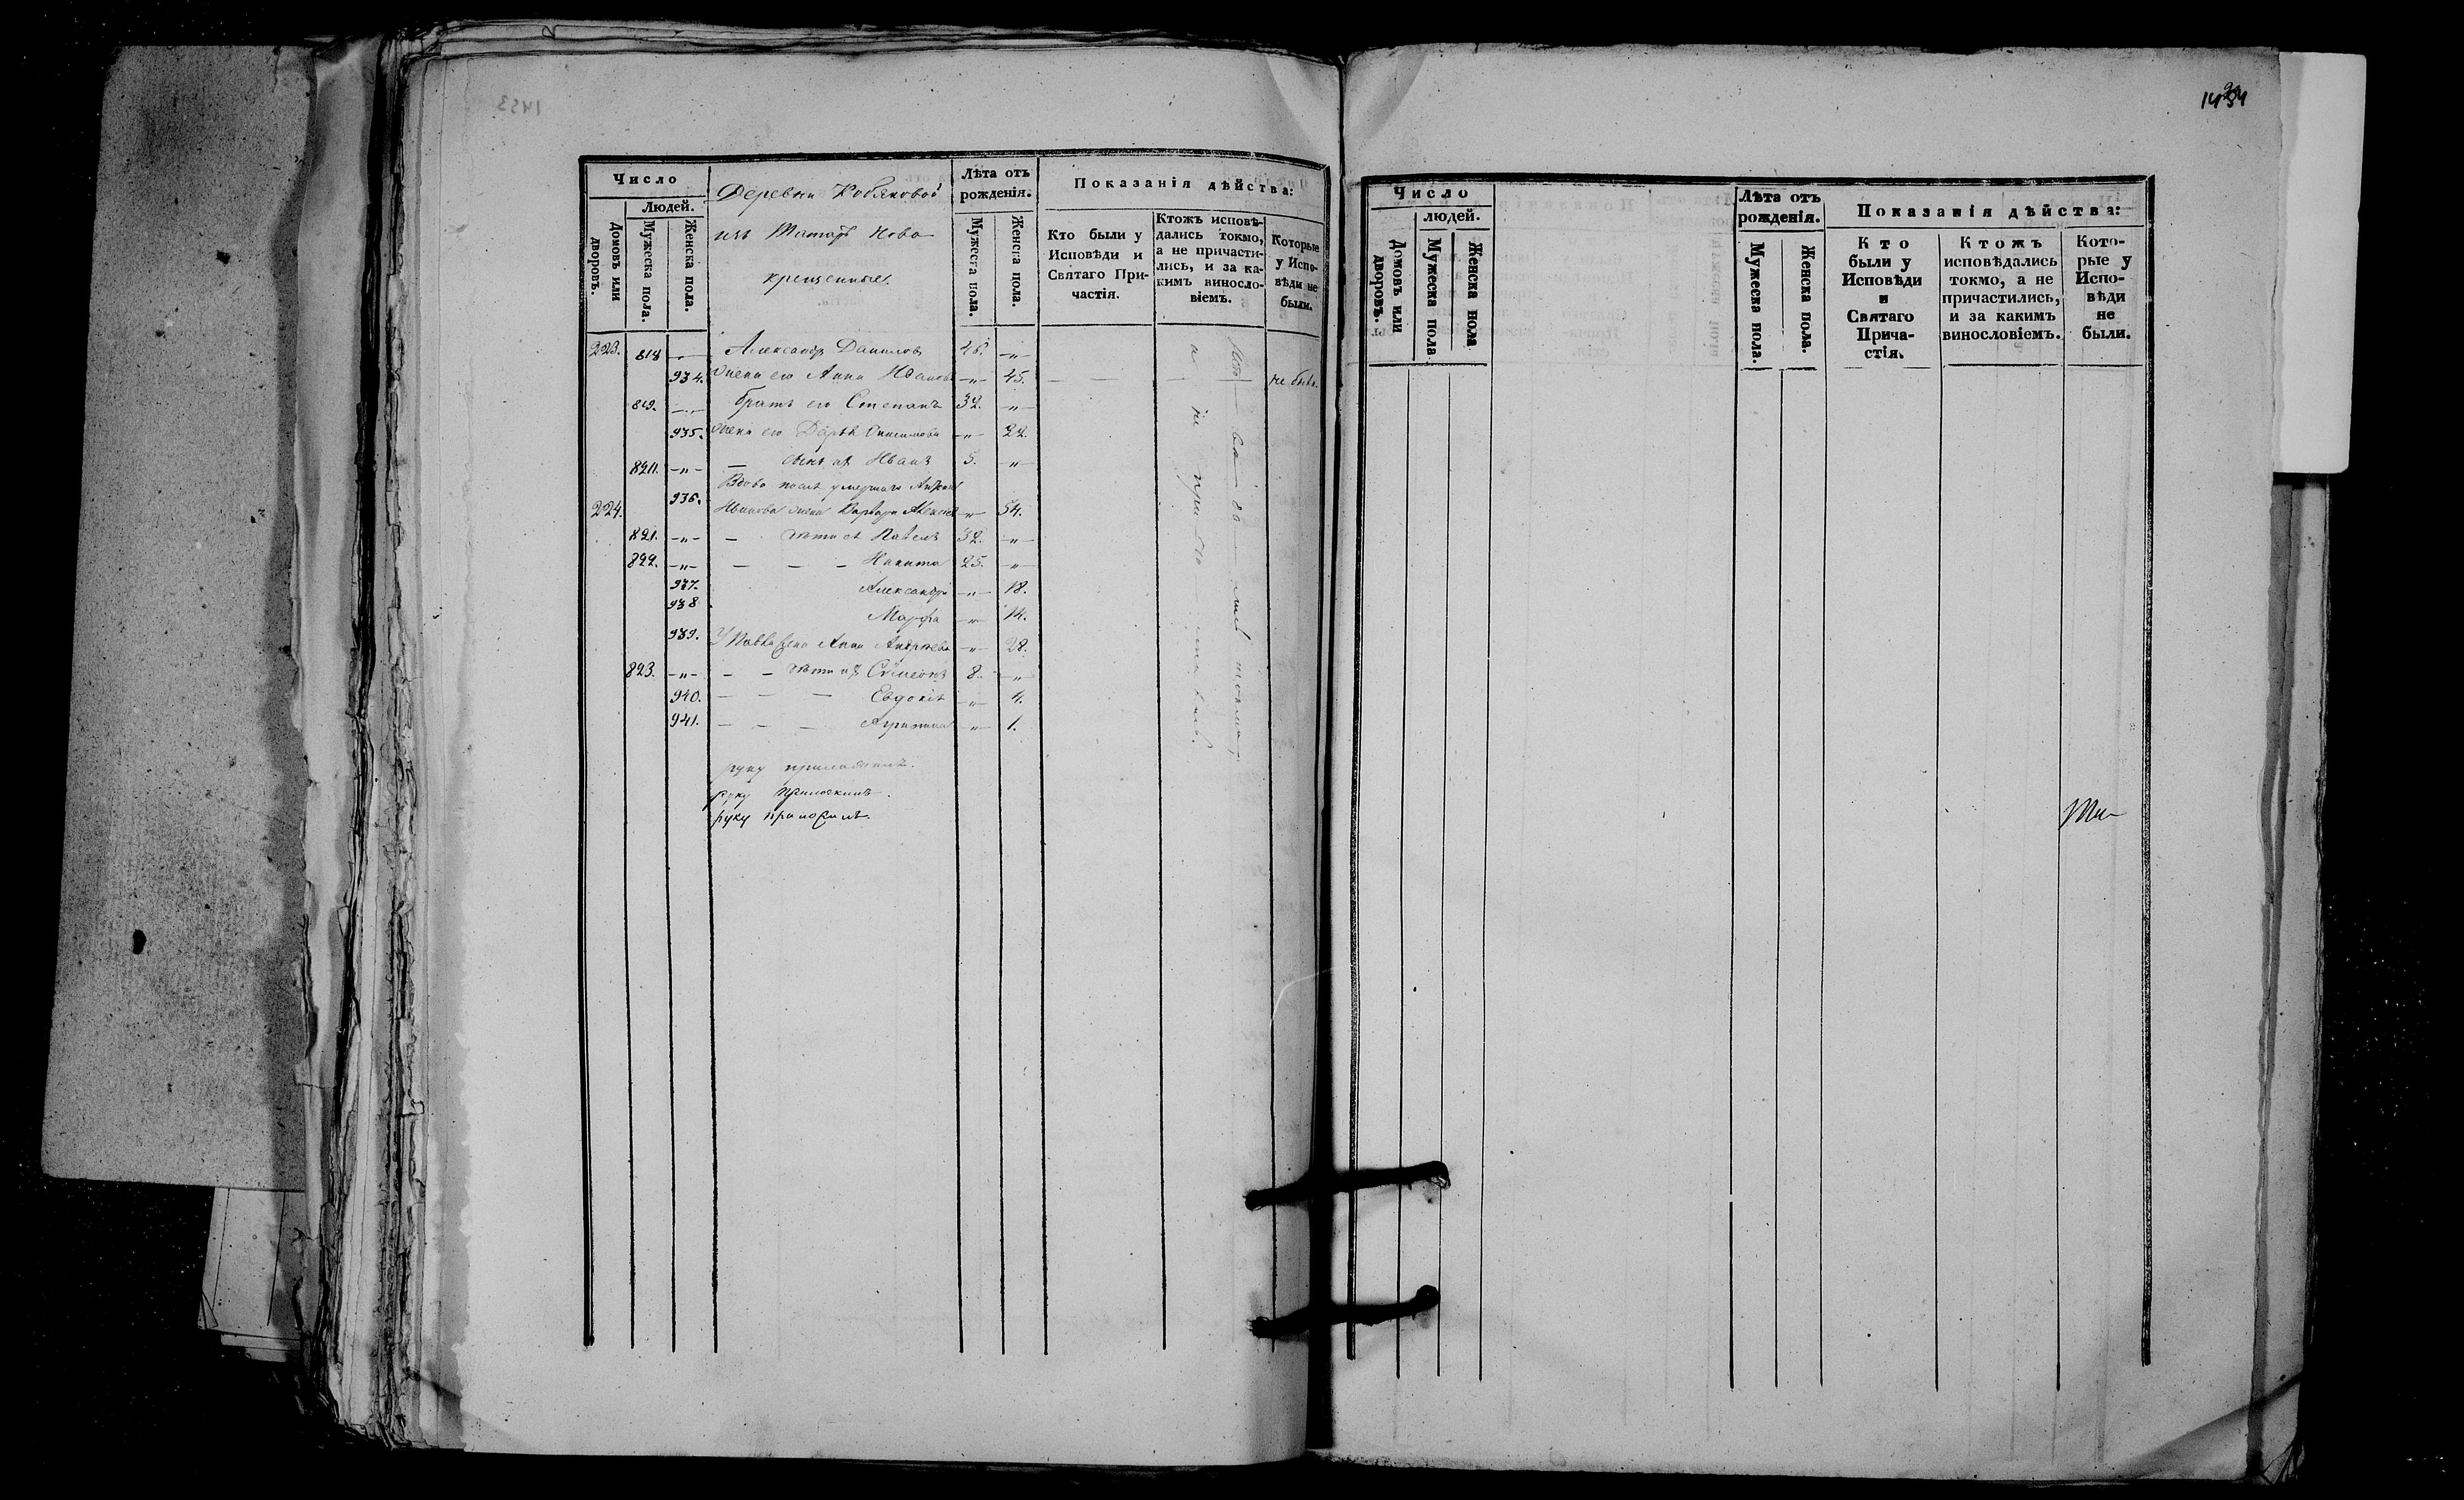 1454
Число
Людей.
Домовъ или дворовъ.
Мужеска пола.
Женска пола.
Деревни Кобяковой
изъ Татаръ Ново
крещенные.
Лѣта отъ рожденія.
Мужеска пола.
Женска пола.
Показанія дѣйства:
Кто были у Исповѣди и Святаго Причастія.
Ктожъ исповѣдались токмо, а не причастились, и за какимъ винословіемъ.
Которые у Исповѣди не были.
223. 818 Александръ Даниловъ 46. -"-
934. жена его Анна Иванова -"- 45. не была.
819. -"- братъ его Степанъ 32. -"-
935. жена его Дарья -"- 22.
820. -"- сынъ ихъ Иванъ 5. -"-
Вдова послѣ умершаго
224. 936. Иванова жена Варвара Алексѣева -"- 54.
821. -"- дѣти её Павелъ 32. -"-
822. -"- Никита 25. -"-
937. Александра -"- 18.
938 Марфа -"- 14.
939. У Павла жена Анна Андреева -"- 28.
823. -"- дѣти ихъ Симеонъ 8. -"-
940. Евдокія -"- 4.
941. Агрипина -"- 1.
руку приложилъ.
руку приложилъ.
руку приложилъ.
Число
людей.
Домовъ или дворовъ.
Мужеска пола
Женска пола
Лѣта отъ рожденія.
Мужеска пола.
Женска пола.
Показанія дѣйства:
Кто были у Исповѣди и Святаго Причастія.
Ктожъ исповѣдались токмо, а не причастились, и за какимъ винословіемъ.
Которые у Исповѣди не были.